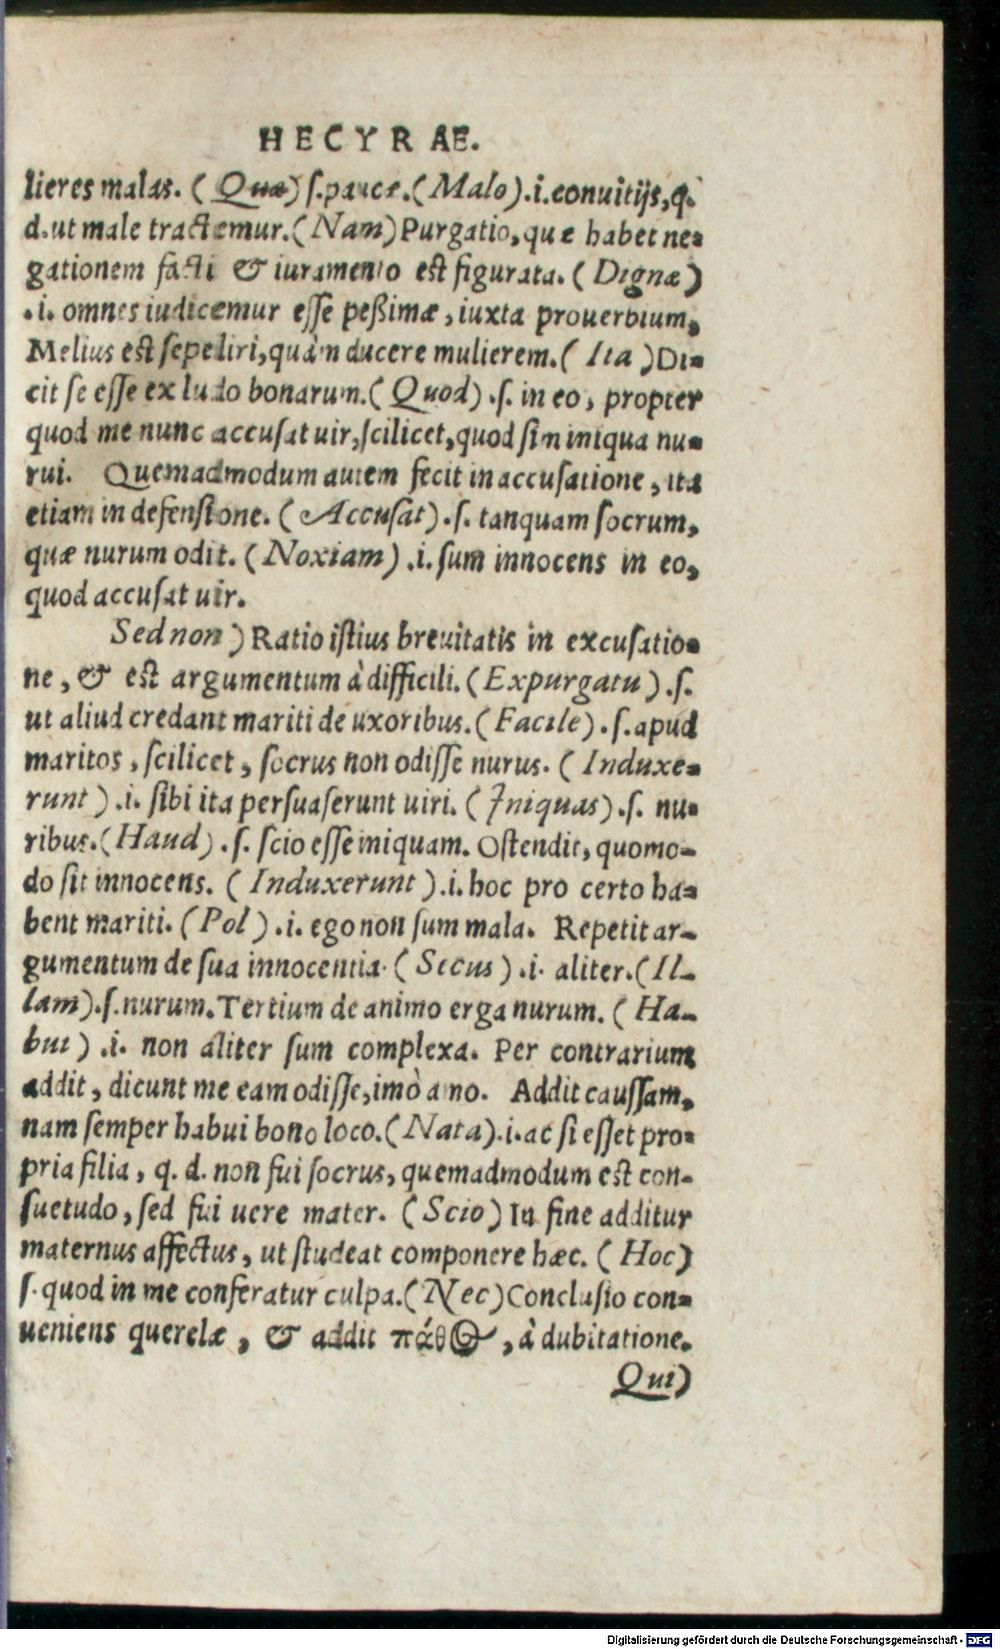 HECYRAE.
lieres malas. (Quæ) ſ. paucæ. (Malo) .i. conuitijs, q.
d. ut male tractemur. (Nam) Purgatio, quæ habet ne-
gationem facti & iuramento est figurata. (Dignæ)
.i. omnes iudicemur eſſe peßimæ, iuxta prouerbium,
Melius est ſepeliri, quàm ducere mulierem. (Ita) Di-
cit ſe eſſe ex ludo bonarum. (Quod) .ſ. in eo, propter
quod me nunc accuſat uir, ſcilicet, quod ſim iniqua nu-
rui. Quemadmodum autem fecit in accuſatione, ita
etiam in defenſione. (Accuſat) .ſ. tanquam ſocrum,
quæ nurum odit. (Noxiam) .i. ſum innocens in eo,
quod accuſat uir.
Sed non) Ratio iſtius breuitatis in excuſatio-
ne, & est argumentum à difficili. (Expurgatu) .ſ.
ut aliud credant mariti de uxoribus. (Facile) .ſ. apud
maritos, ſcilicet, ſocrus non odiſſe nurus. (Induxe-
runt) .i. ſibi ita perſuaſerunt uiri. (Iniquas) .ſ. nu-
ribus. (Haud) .ſ. ſcio eſſe iniquam. Oſtendit, quomo-
do ſit innocens. (Induxerunt) .i. hoc pro certo ha-
bent mariti. (Pol) .i. ego non ſum mala. Repetit ar-
gumentum de ſua innocentia. (Secus) .i. aliter. (Il-
lam) .ſ. nurum. Tertium de animo erga nurum. (Ha-
bui) .i. non aliter ſum complexa. Per contrarium
addit, dicunt me eam odiſſe, imò amo. Addit cauſſam,
nam ſemper habui bono loco. (Nata) .i. ac ſi eſſet pro-
pria filia, q. d. non fui ſocrus, quemadmodum est con-
ſuetudo, ſed fui uere mater. (Scio) In fine additur
maternus affectus, ut ſtudeat componere hæc. (Hoc)
ſ. quod in me conferatur culpa. (Nec) Concluſio con-
ueniens querelæ, & addit πάθος, à dubitatione.
Qui)
Digitalisierung gefördert durch die Deutsche Forschungsgemeinschaft - DFG